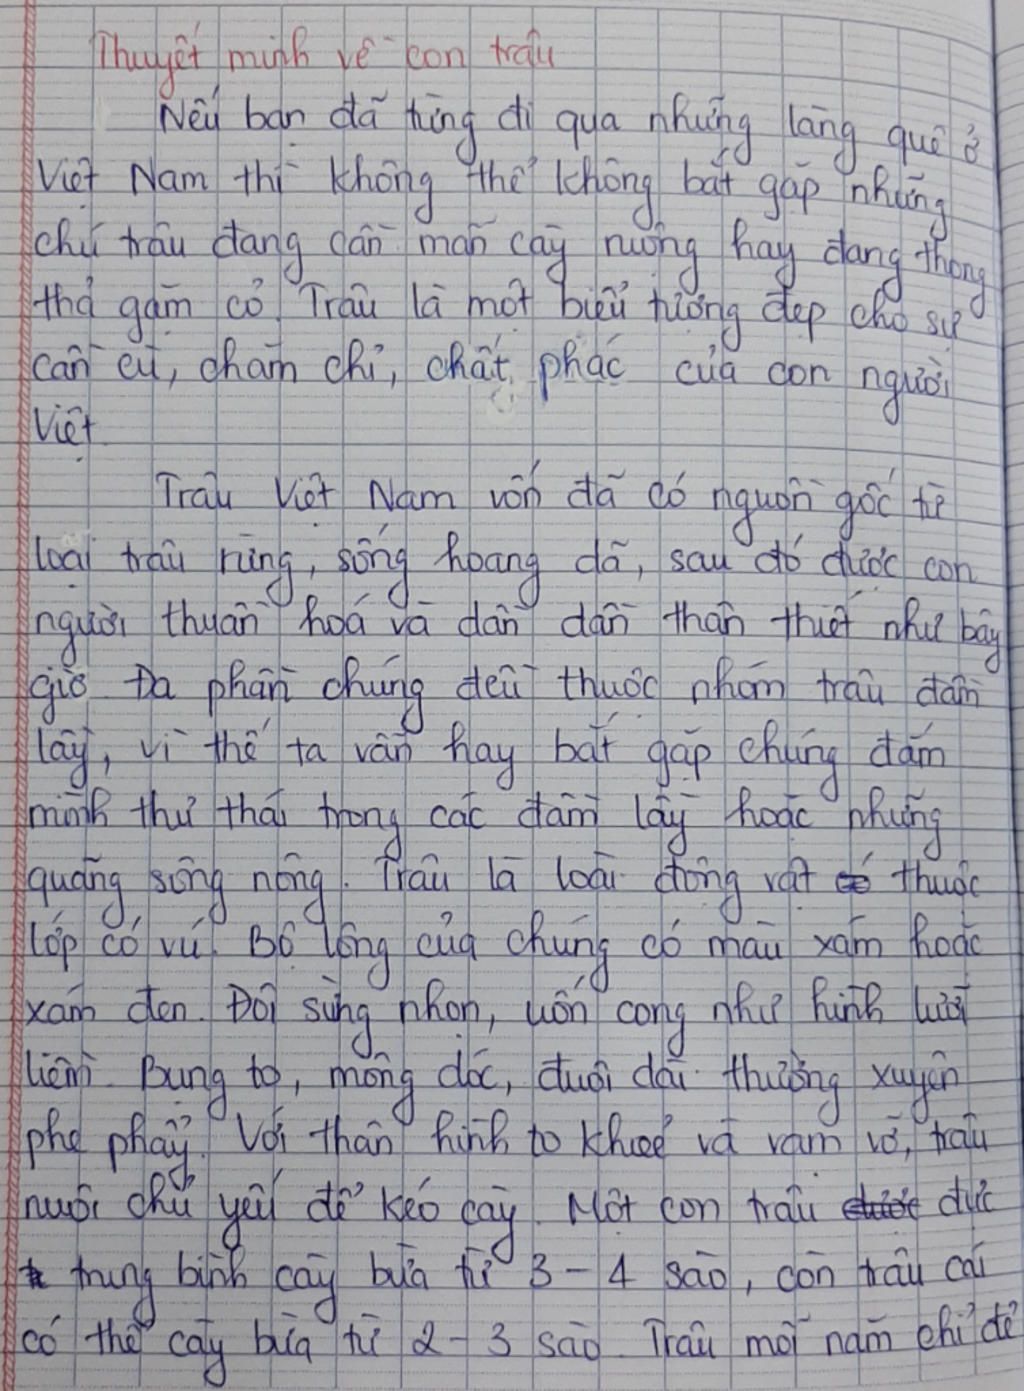 Thuyết minh về con trâu
Nếu bạn đã từng đi qua những làng quê ở
Việt Nam thì không thể không bắt gặp những
chú trâu đang cần mẫn cày ruộng hay đang thong
thả gặm cỏ. Trâu là một biểu tượng đẹp cho sự
cần cù, chăm chỉ, chất phác của con người
Việt.
Trâu Việt Nam vốn đã có nguồn gốc từ
loại trâu rừng, sống hoang dã, sau đó được con
người thuần hoá và dần dần thân thiết như bây
giờ. Đa phần chúng đều thuộc nhóm trâu đầm
lầy, vì thế ta vẫn hay bắt gặp chúng đầm
mình thư thái trong các đầm lầy hoặc những
quãng sông nông. Trâu là loài động vật thuộc
lớp có vú. Bộ lông của chúng có màu xám hoặc
xám đen. Đôi sừng nhọn, uốn cong như hình lưỡi
liềm. Bụng to, mông dốc, đuôi dài thường xuyên
phe phẩy. Với thân hình to khoẻ và vạm vỡ, trâu
nuôi chủ yếu để kéo cày. Một con trâu đực
trung bình cày bừa từ 3 - 4 sào, còn trâu cái
có thể cày bừa từ 2 - 3 sào. Trâu mỗi năm chỉ đẻ